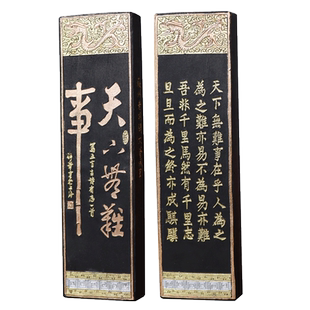 天下無難
事
天下無難事在乎人為之
為之難亦易不為易亦難
吾非千里馬然有千里志
旦旦而為之終亦成騏驥